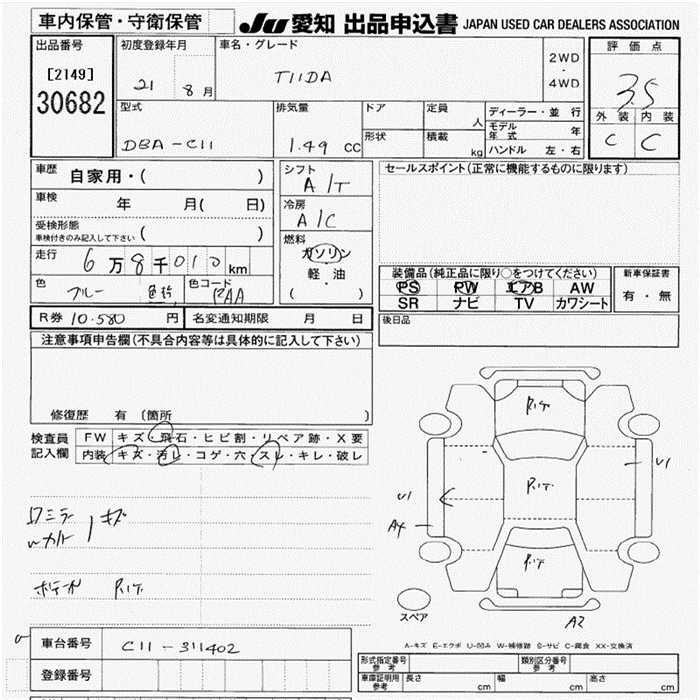 車内保管・守衛保管
JU 愛知 出品申込書 JAPAN USED CAR DEALERS ASSOCIATION
出品番号
[2149]
30682
初度登録年月
21 8 月
車名・グレード
TIIDA
2WD
・
4WD
評価点
3.5
外装 内装
C C
型式
DBA-C11
排気量
1.49 CC
ドア
形状
定員
人
積載
kg
ディーラー・並行
モデル年式 年
ハンドル 左・右
車歴
自家用・( )
車検 年 月( 日)
受検形態
車検付きのみ記入して下さい ( )
走行 6万8千010km
色 ブルー
色替
色コード RAA
シフト
A/T
冷房
A/C
燃料
ガソリン
軽・油
( )
セールスポイント(正常に機能するものに限ります)
装備品(純正品に限り○をつけてください)
PS PW エアB AW
SR ナビ TV カワシート
新車保証書
有・無
R券 10.580 円 名変通知期限 月 日
後日品
注意事項申告欄(不具合内容等は具体的に記入して下さい)
修復歴 有 (箇所 )
検査員
記入欄
FW キズ・飛石・ヒビ割・リペア跡・X要
内装 キズ・汚レ・コゲ・穴・スレ・キレ・破レ
キズ
R.イケ
R.イケ
R.イケ
R.イケ
U1
U1
A4
A2
スペア
A-キズ E-エクボ U-凹み W-補修跡 S-サビ C-腐食 XX-交換済
車台番号 C11-311402
登録番号
型式指定番号
参考
類別区分番号
参考
車庫証明用
参考
長さ cm 幅 cm 高さ cm